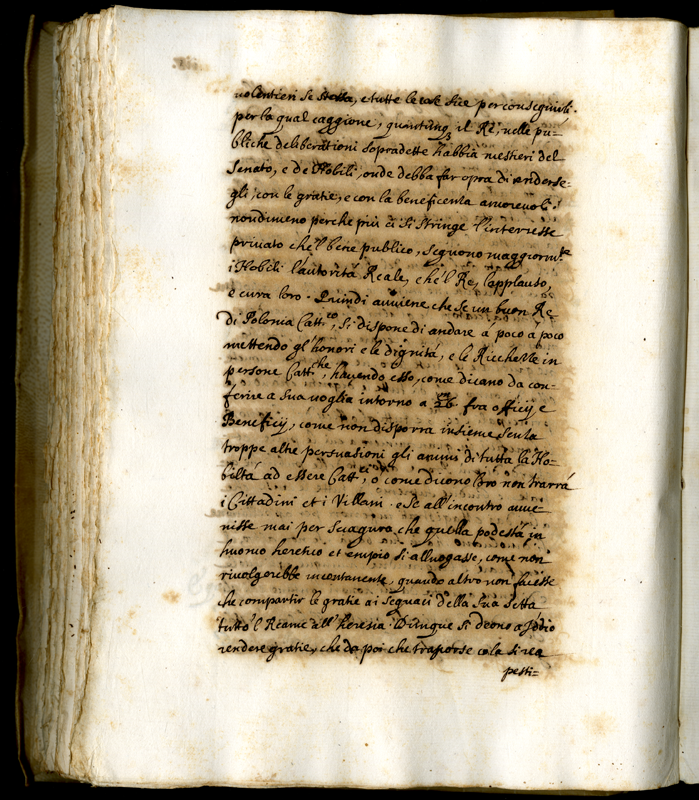 uolentieri se stessa, e tutte le cose sue per conseguirli.
per la qual caggione, quantunq3 il Rè, nelle pu=
bliche deliberationi sopradette habbia mestieri del
Senato, e de Nobili, onde debba far opra di renderse=
gli, con le gratie, e con la beneficenza amoreuoli:
nondimeno perche più ci si stringe l'interesse
priuato che'l bene publico, seguono maggiorm.te
i Nobili l'autorità Reale, che'l Re, l'applauso,
e cura loro. Quindi auuiene che se un buon Re
di Polonia Catt.co, si dispone di andare à poco à poco
mettendo gl'honori e le dignità, e le Ricchezze in
persone Catt.che, hauendo esso, come dicano da con=
ferire a sua uoglia intorno a fra officij e
Beneficij, come non disporrà insieme senza
troppe altre persuasioni gli animi di tutta la No=
biltà ad essere Catt.ci, o come dicono loro non trarrà
i Cittadini et i Villani. e se all'incontro auue=
nisse mai per sciagura che quella podestà in
huomo heretico et empio si alluogasse, come non
riuolgerebbe incontanente, quando altro non facesse
che compartir le gratie ai seguaci della sua setta
tutto'l Reame all'heresia. Dunque si deono a Iddio
rendere gratie, che da poi che traporse cola si rea
pesti=